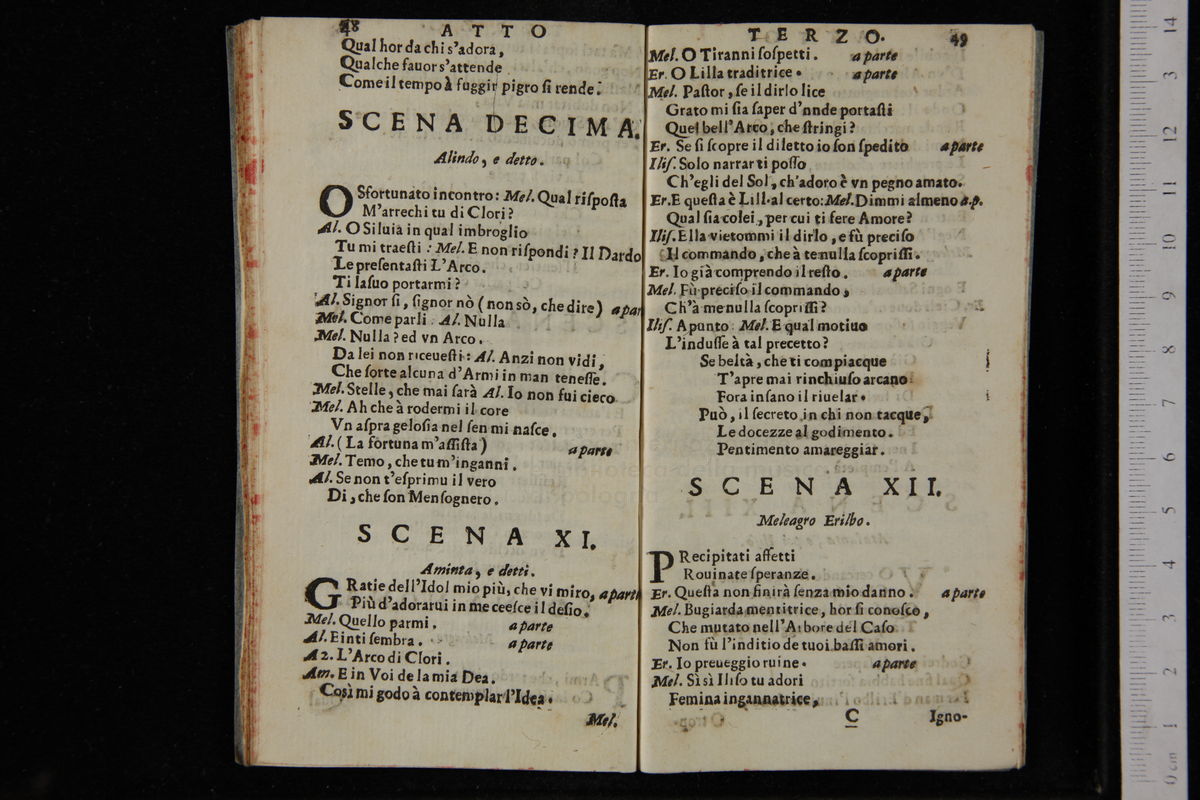 48 ATTO
Qual hor da chi s'adora,
Qualche fauor s'attende
Come il tempo à fuggir pigro ſi rende.
SCENA DECIMA.
Alindo, e detto.
O Sfortunato incontro: Mel. Qual riſpoſta
M'arrechi tu di Clori?
Al. O Siluia in qual imbroglio
Tu mi traeſti: Mel. E non riſpondi? Il Dardo
Le preſentaſti L'Arco.
Ti laſuo portarmi?
Al. Signor ſi, ſignor nò (non sò, che dire) apar
Mel. Come parli. Al. Nulla
Mel. Nulla? ed vn Arco.
Da lei non riceueſti: Al. Anzi non vidi,
Che forte alcuna d'Armi in man teneſſe.
Mel. Stelle, che mai ſarà Al. Io non fui cieco
Mel. Ah che à rodermi il core
Vn aſpra geloſia nel ſen mi naſce.
Al. (La fortuna m'aſſiſta) aparte
Mel. Temo, che tu m'inganni.
Al. Se non t'eſprimu il vero
Di, che ſon Menſognero.
SCENA XI.
Aminta, e detti.
GRatie dell'Idol mio più, che vi miro, aparte
Più d'adorarui in me ceeſce il deſio.
Mel. Quello parmi. aparte
Al. E inti ſembra. aparte
A 2. L'Arco di Clori.
Am. E in Voi de la mia Dea.
Così mi godo à contemplar l'Idea.
Mel.
TERZO. 49
Mel. O Tiranni ſoſpetti. aparte
Er. O Lilla traditrice. aparte
Mel. Paſtor, ſe il dirlo lice
Grato mi ſia ſaper d'nnde portaſti
Quel bell'Arco, che ſtringi?
Er. Se ſi ſcopre il diletto io ſon ſpedito aparte
Iliſ. Solo narrar ti poſſo
Ch'egli del Sol, ch'adoro è vn pegno amato.
Er. E queſta è Lill. al certo: Mel. Dimmi almeno a.p.
Qual ſia colei, per cui ti fere Amore?
Iliſ. Ella vietommi il dirlo, e fù preciſo
Il commando, che à te nulla ſcopriſſi.
Er. Io già comprendo il reſto. aparte
Mel. Fù preciſo il commando,
Ch'à me nulla ſcopriſſi?
Iliſ. A punto: Mel. E qual motiuo
L'induſſe à tal precetto?
Se beltà, che ti compiacque
T'apre mai rinchiuſo arcano
Fora inſano il riuelar.
Può, il ſecreto in chi non tacque,
Le docezze al godimento.
Pentimento amareggiar.
SCENA XII.
Meleagro Erilbo.
PRecipitati affetti
Rouinate ſperanze.
Er. Queſta non finirà ſenza mio danno. aparte
Mel. Bugiarda mentitrice, hor ſi conoſco,
Che mutato nell'Arbore del Caſo
Non fù l'inditio de tuoi baſſi amori.
Er. Io preueggio ruine. aparte
Mel. Sì sì Iliſo tu adori
Femina ingannatrice,
C Igno-